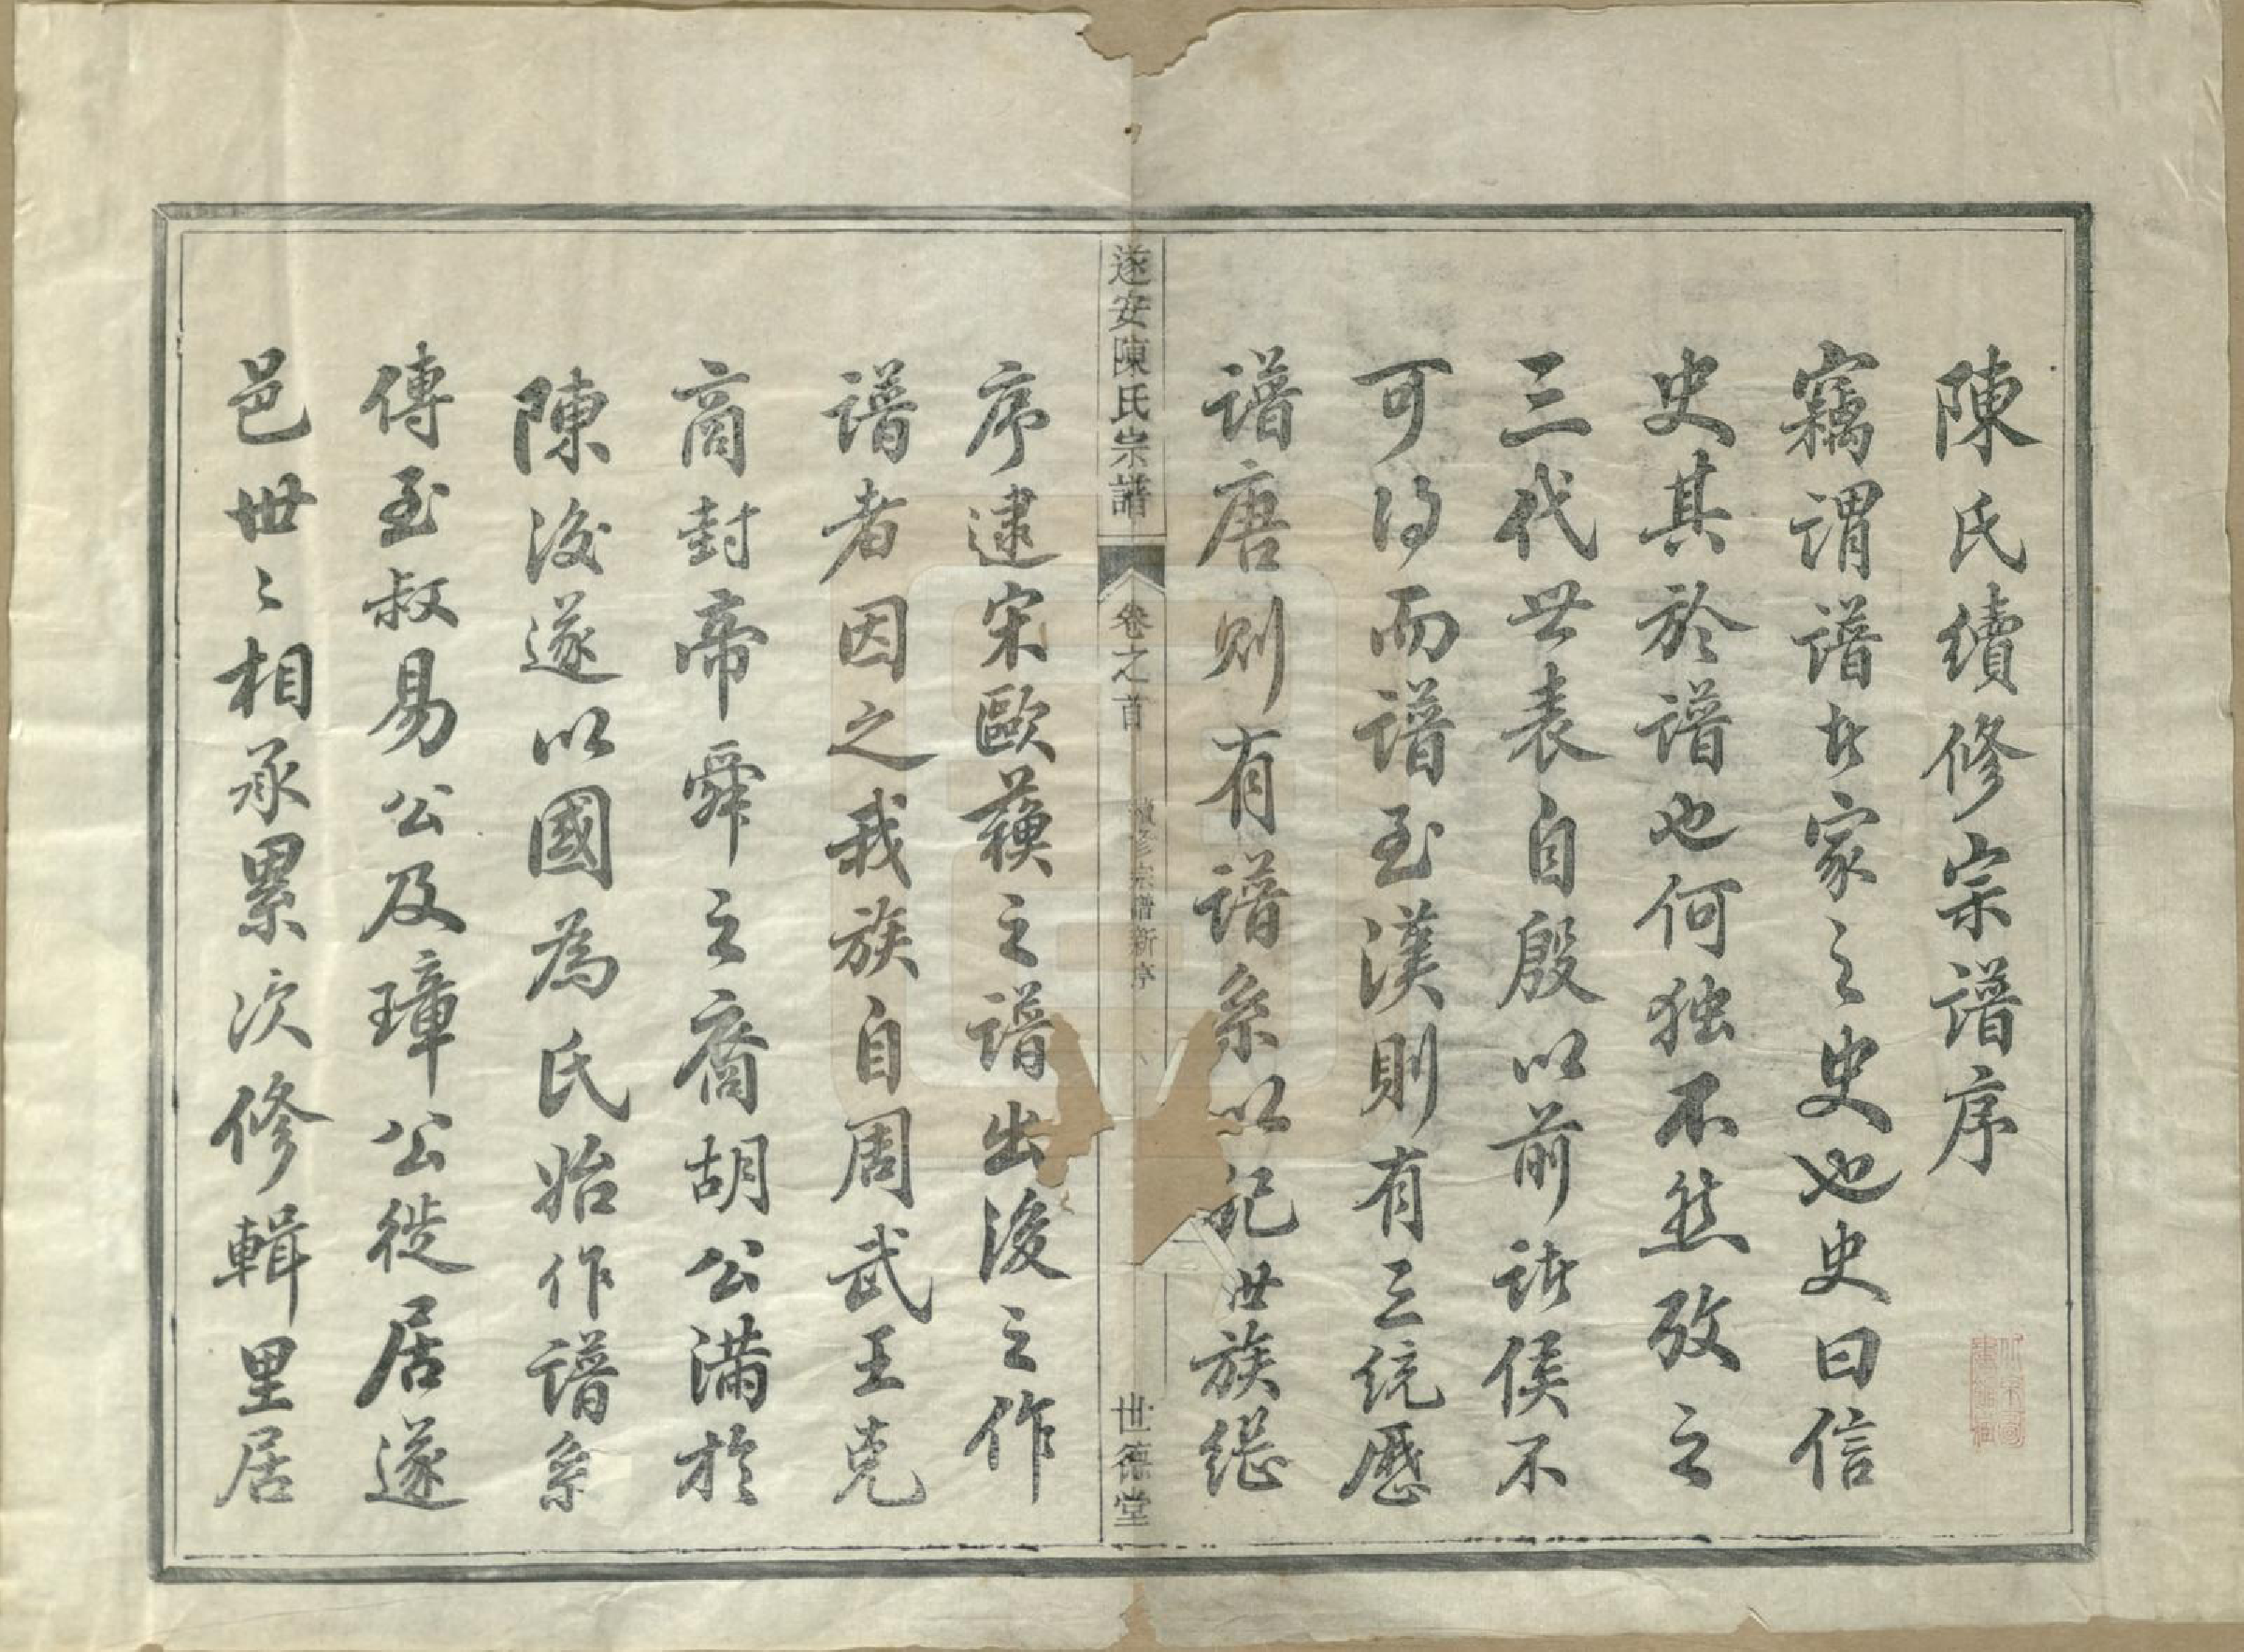 陳氏續修宗譜序
竊謂譜者家之史也史曰信
史其於譜也何独不然攷之
三代世表自殷以前諸侯不
可得而譜至漢則有三统歷
譜唐則有譜系以記世族继
遂安陳氏宗譜 卷之首 續修宗譜新序 一 世德堂
序逮宋歐蘓之譜出後之作
譜者因之我族自周武王克
商封帝舜之裔胡公满於
陳後遂以國為氏始作譜系
傳至叔易公及璋公徙居遂
邑世〻相承累次修輯里居